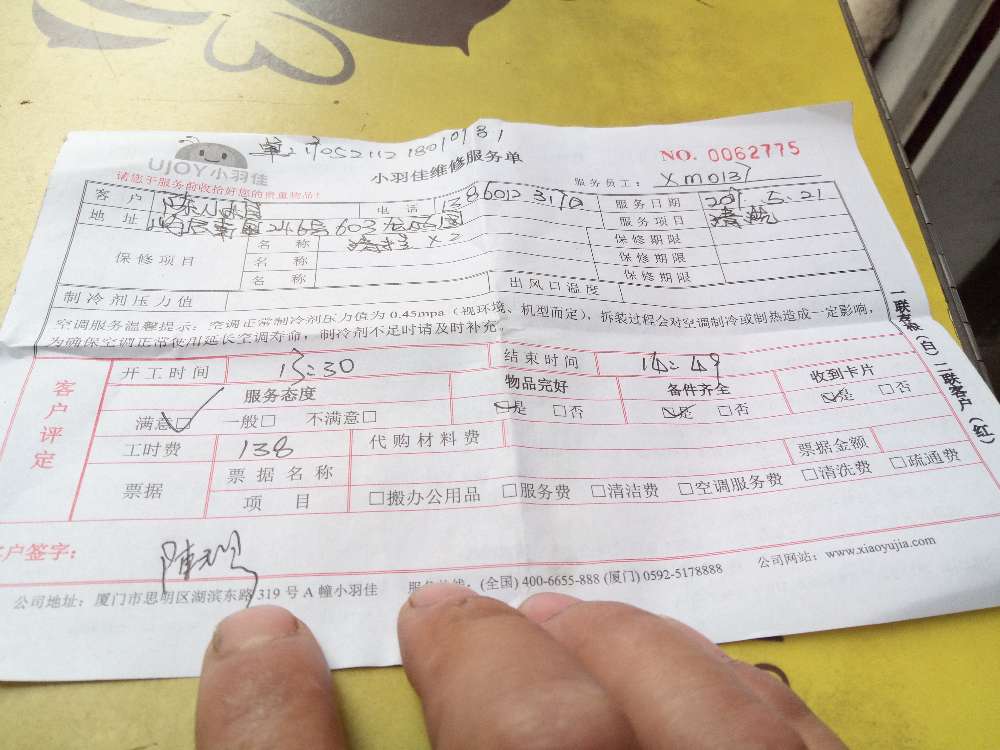 单:1705211218010181
UJOY小羽佳
小羽佳维修服务单
NO. 0062775
请您于服务前收拾好您的贵重物品!
服务员工: XM0137
客户 电话 13860123170 服务日期 2017.5.21
地址 246号603 服务项目 清洗
保修项目 名称 清挂 x2 保修期限
名称 保修期限
名称 保修期限
制冷剂压力值 出风口温度
空调服务温馨提示:空调正常制冷剂压力值为0.45mpa(视环境、机型而定),拆装过程会对空调制冷或制热造成一定影响,
为确保空调正常使用延长空调寿命,制冷剂不足时请及时补充。
一联存根(白) 二联客户(红)
客户评定
开工时间 13:30 结束时间 14:49
服务态度 物品完好 备件齐全 收到卡片
满意☑ 一般□ 不满意□ ☑是 □否 ☑是 □否 ☑是 □否
工时费 138 代购材料费 票据金额
票据 票据名称
项目 □搬办公用品 □服务费 □清洁费 □空调服务费 □清洗费 □疏通费
客户签字:
公司地址:厦门市思明区湖滨东路319号A幢小羽佳 服务热线:(全国) 400-6655-888 (厦门) 0592-5178888 公司网站:www.xiaoyujia.com